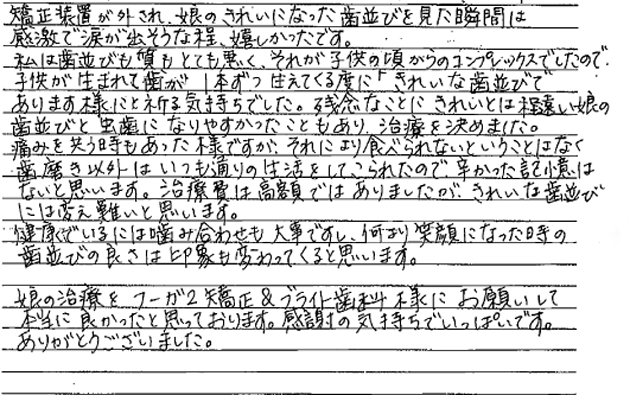 矯正装置が外され、娘のきれいになった歯並びを見た瞬間は
感激で涙が出そうな程、嬉しかったです。
私は歯並びも質もとても悪く、それが子供の頃からのコンプレックスでしたので、
子供が生まれて歯が1本ずつ生えてくる度に「きれいな歯並びで
あります様にと祈る気持ちでした。残念なことにきれいとは程遠い娘の
歯並びと虫歯になりやすかったこともあり、治療を決めました。
痛みを伴う時もあった様ですが、それにより食べられないということはなく
歯磨き以外はいつも通りの生活をしてこられたので辛かった記憶は
ないと思います。治療費は高額ではありましたが、きれいな歯並び
には変え難いと思います。
健康でいるには噛み合わせも大事ですし、何より笑顔になった時の
歯並びの良さは印象も変わってくると思います。
娘の治療を、フーガ2矯正&ブライト歯科様にお願いして
本当に良かったと思っております。感謝の気持ちでいっぱいです。
ありがとうございました。